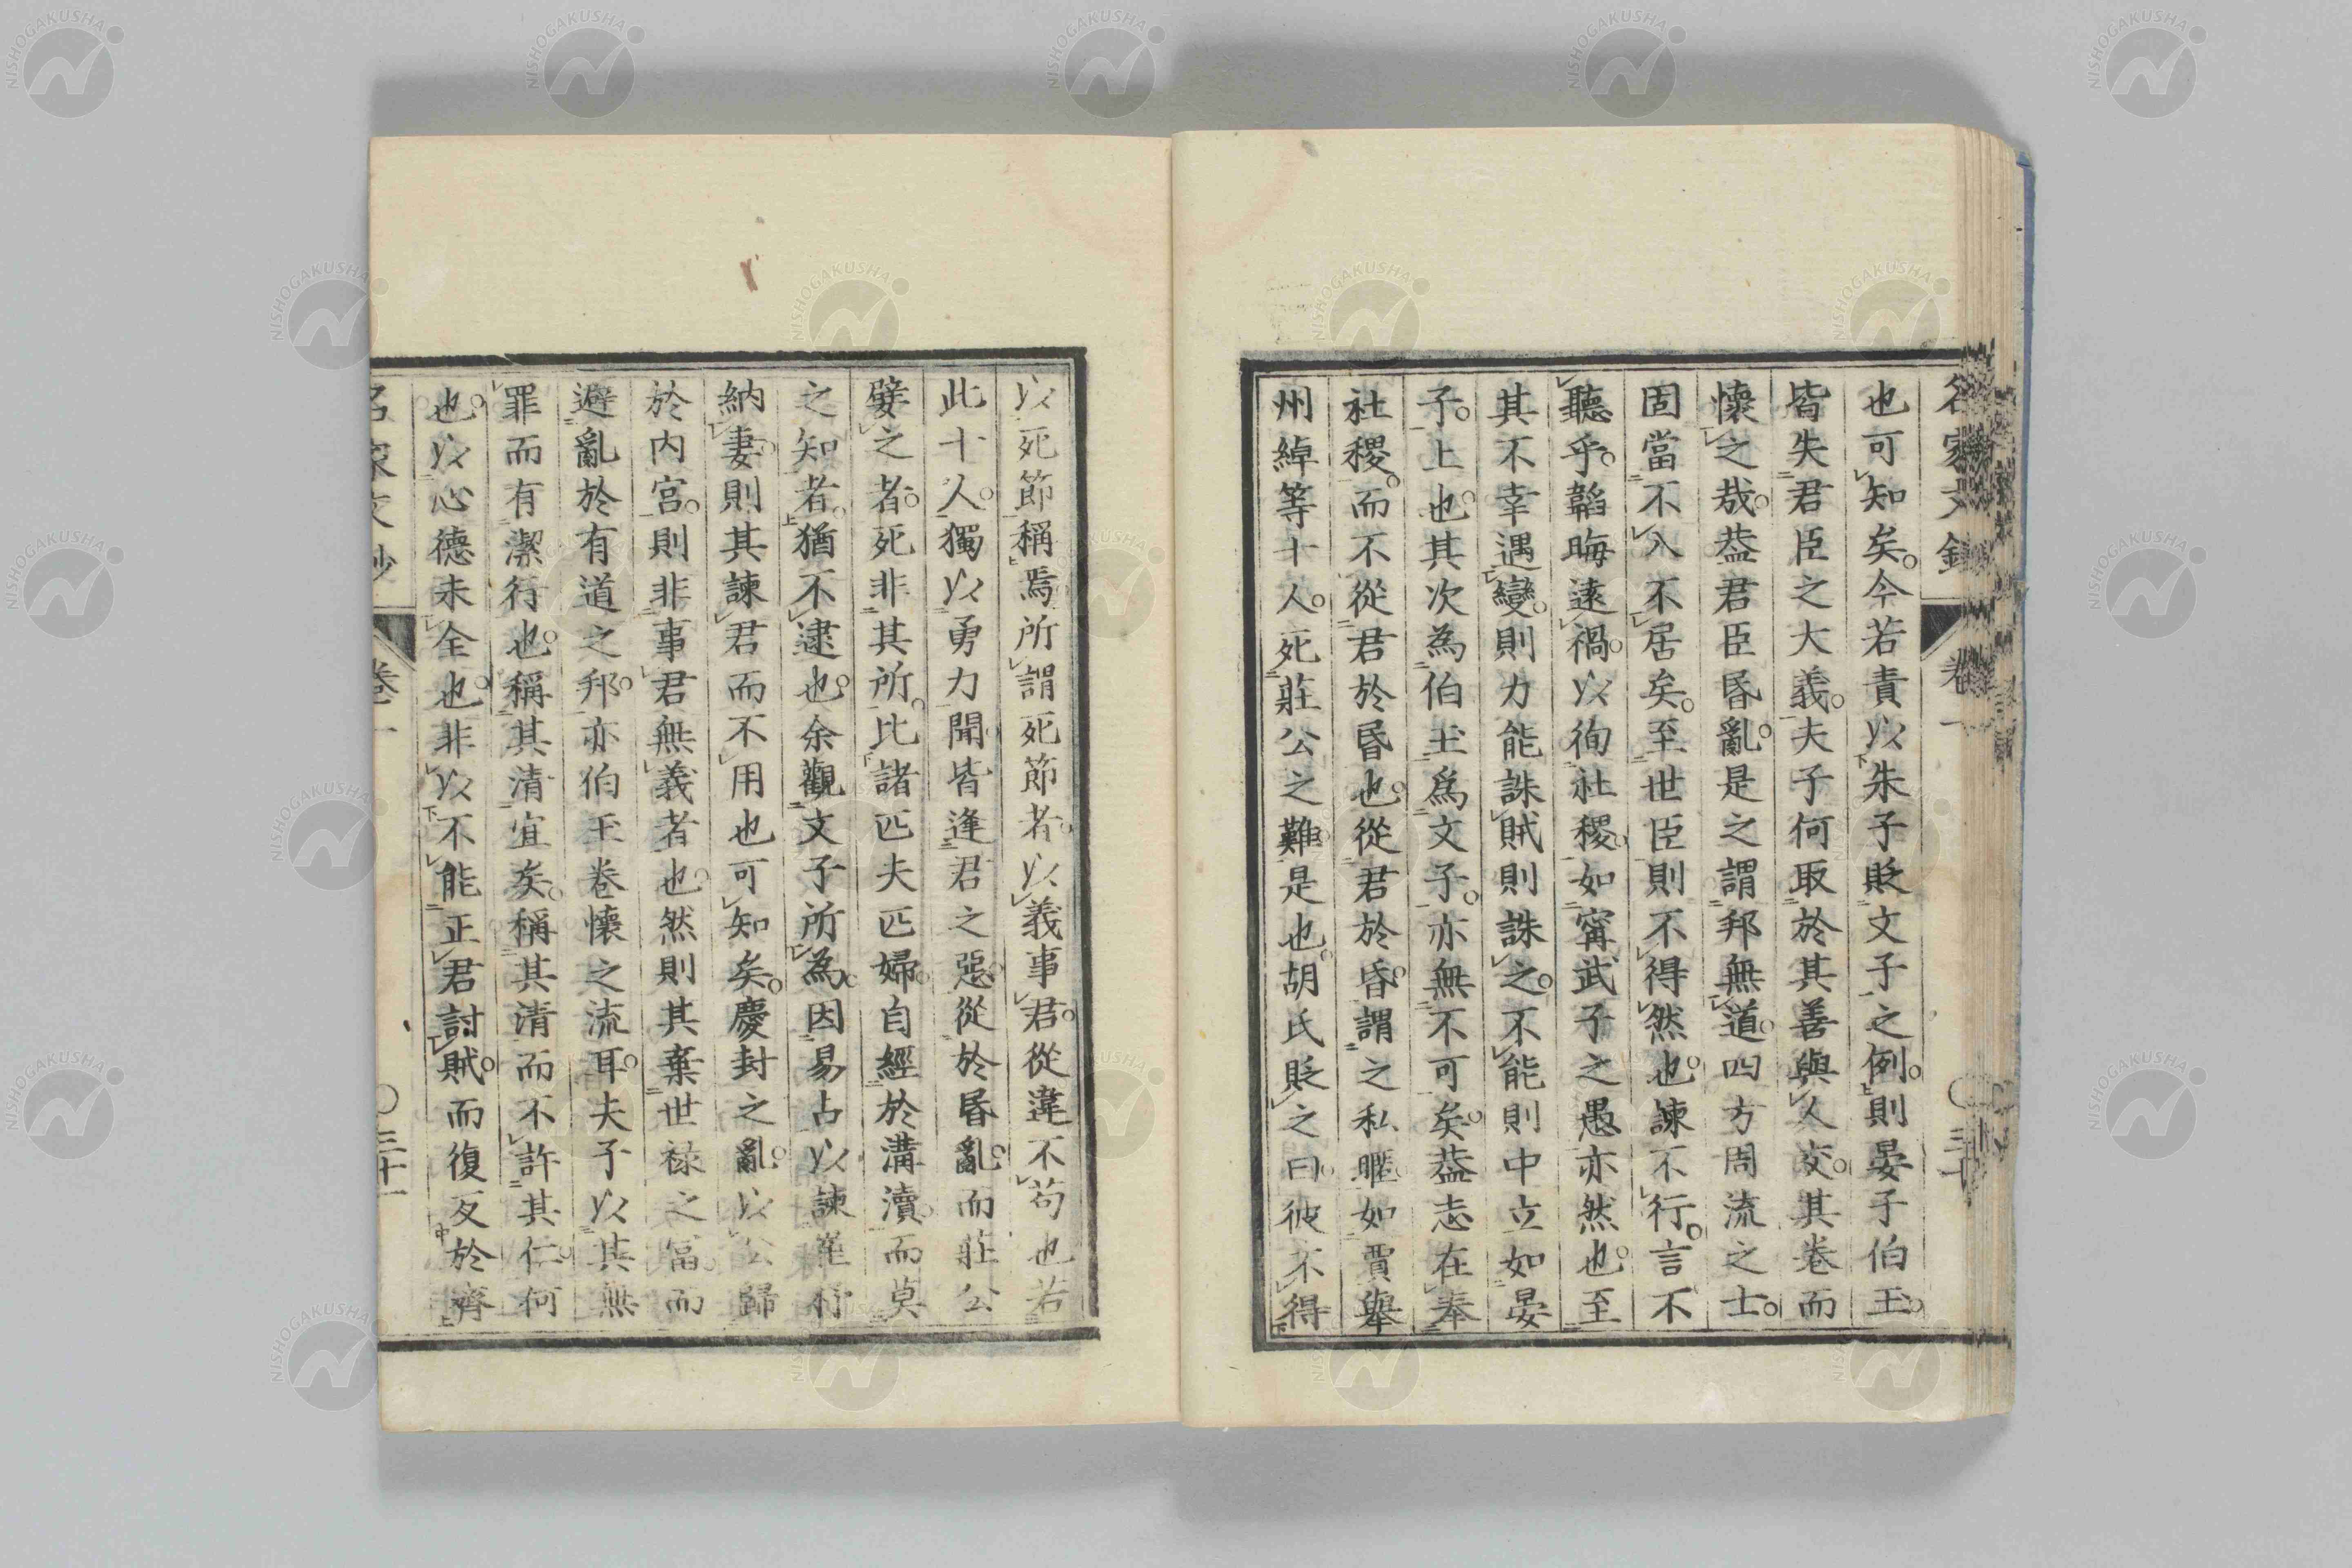 也可知矣。今若責以朱子貶文子之例。則晏子伯玉。
皆失君臣之大義。夫子何取於其善與人交。其卷而
懷之哉。蓋君臣昏亂。是之謂邦無道。四方周流之士。
固當不入不居矣。至世臣則不得然也。諫不行。言不
聽乎。韜晦遠禍。以徇社稷。如甯武子之愚亦然也。至
其不幸遇變。則力能誅賊則誅之。不能則中立如晏
子。上也。其次為伯玉爲文子。亦無不可矣。蓋志在奉
社稷。而不從君於昏也。從君於昏。謂之私暱。如賈舉
州綽等十人。死莊公之難。是也。胡氏貶之曰。彼不得
以死節稱焉。所謂死節者。以義事君。從違不苟也。若
此十人。獨以勇力聞。皆逢君之惡。從於昏亂。而莊公
嬖之者。死非其所。比諸匹夫匹婦。自經於溝瀆。而莫
之知者。猶不逮也。余觀文子所為。因易占以諫崔杼
納妻。則其諫君而不用也可知矣。慶封之亂。以公歸
於内宮。則非事君無義者也。然則其棄世祿之富。而
避亂於有道之邦。亦伯玉卷懷之流耳。夫子以其無
罪而有潔行也。稱其清宜矣。稱其清而不許其仁。何
也。以心德未全也。非以不能正君討賊。而復反於齊
卷一
三十一
NISHOGAKUSHA